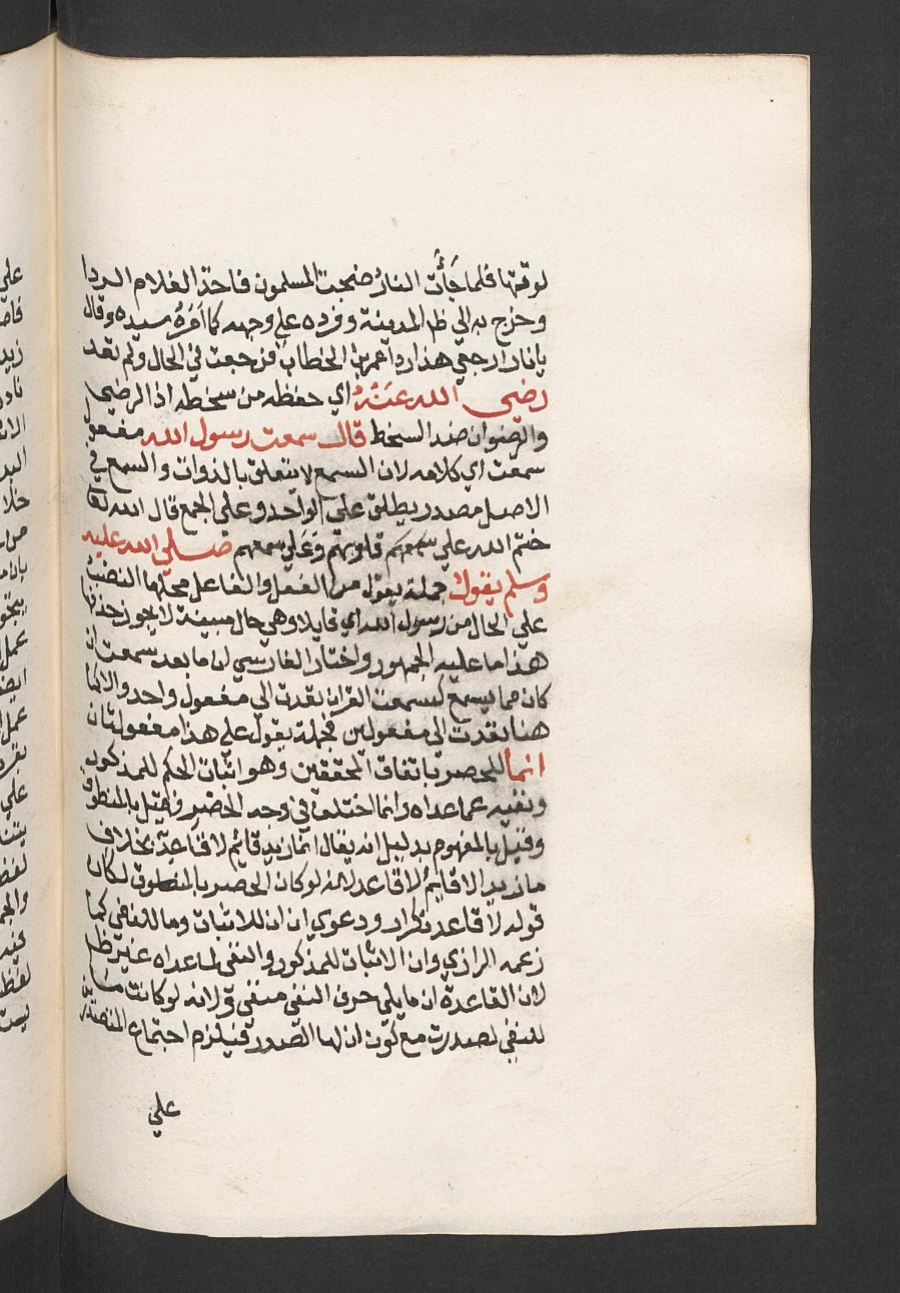 لوقتها فلما جَأَت النارُ ضجت المسلمون فاخذ الغلام الردا
وخرج به الي ظاهر المدينة وفرده علي وجهه كما اَمَرَهُ سيده وقال
يا نار ارجعي هذا ردا عمر بن الخطاب فرجعت في الحال ولم تعد
رضي الله عَنْهُ اي حفظه من سخطه اذ الرضي
والرضوان ضد السخط قال سمعت رسول الله مفعول
سمعت اي كلامه لان السمع لا يتعلق بالذوات والسمع في
الاصل مصدر يطلق علي الواحد وعلي الجمع قال الله تعا
ختم الله علي سمعهم قلوبهم وَعَلي سمعهم صلي الله عليه
وسلم يقول جملة يقول من الفعل والفاعل محلها النصب
علي الحال من رسول الله اي قايلا وهي حال مبينة لا يجوز حذفها
هذا ما عليه الجمهور واختار الفارسي ان ما بعد سمعت ان
كان مما يسمع كسمعت القران تعدت الي مفعول واحد والا كما
هنا تعدت الي مفعولين فجملة يقول علي هذا مفعول ثان
انما للحصر باتفاق المحققين وهو اثبات الحكم للمذكور
ونفيه عما عداه وانما اختلف في وجه الحصر فقيل بالمنطوق
وقيل بالمفهوم بدليل انه يقال انما زيد قائم لا قاعد بخلاف
ما زيد الا قايم لا قاعد لانه لو كان الحصر بالمنطوق لكان
قوله لا قاعد تكرار ودعوي ان ان للاثبات وما للنفي كما
زعمه الرازي وان الاثبات للمذكور والنفي لما عداه غير ظا
لان القاعدة ان ما يلي حرف النفي منفي ولانه لو كانت ما
للنفي لصدرت مع كون ان لها الصدور فيلزم اجتماع المتصدرين
علي